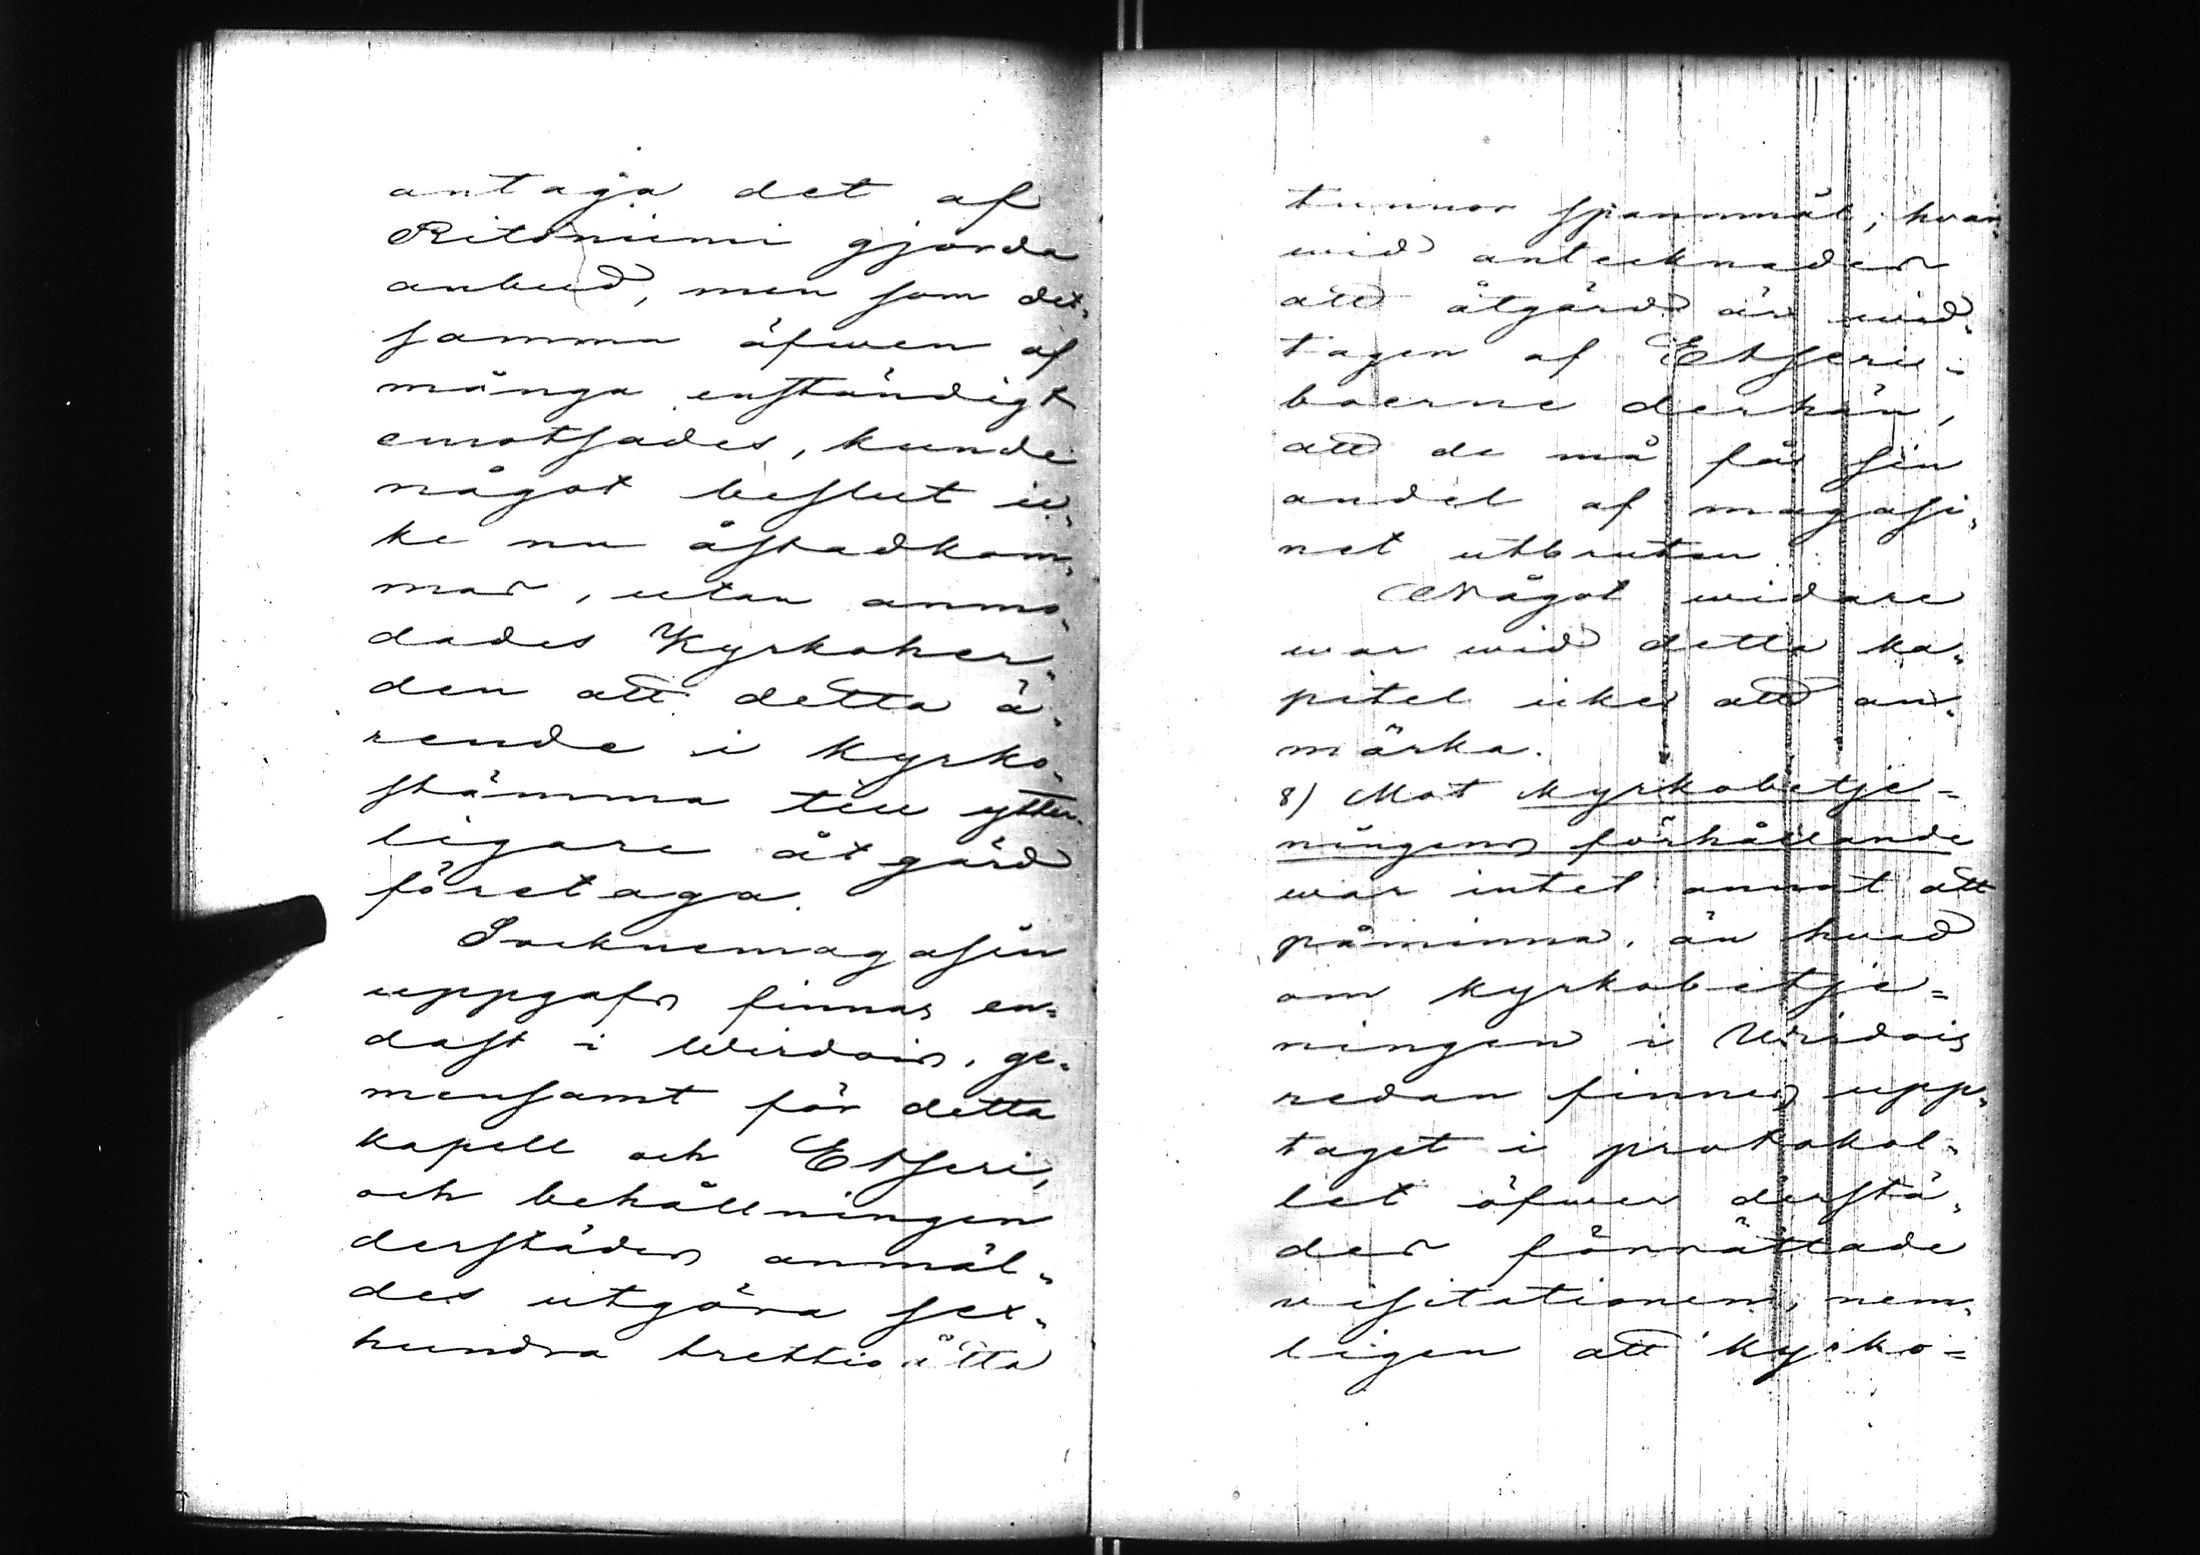 antaga det af
Ritoniemi gjorda
anbud, men som det„
samma äfwen af
många enständigt
emotsades, kunde
något beslut ic„
ke nu åstadkom„
mas, utan anmo„
dades Kyrkoher„
den att detta ä„
rende i kyrko„
stämma till ytter„
ligare åtgärd
företaga.
Socknemagasin
uppgafs finnas en=
dast i Wirdois, ge„
mensamt för detta
kapell och Etseri,
och behållningen
derstädes anmäl„
des utgöra sex„
hundra trettio åtta
tunnor spannmål; hvar„
wid antecknades
att åtgärd är wid„
tagen af Etseri=
boerne derhän,
att de må få sin
andel af magasi„
net utbruten.
Något widare
war wid detta ka„
pitel icke att an„
märka.
8) Mot kyrkobetje=
ningens förhållande
war intet annat att
påminna, än hvad
om kyrkobetje=
ningen i Wirdois
redan finnes upp„
taget i protokol„
let öfwer derstä„
des förrättade
visitationen, nem„
ligen att kyrko=